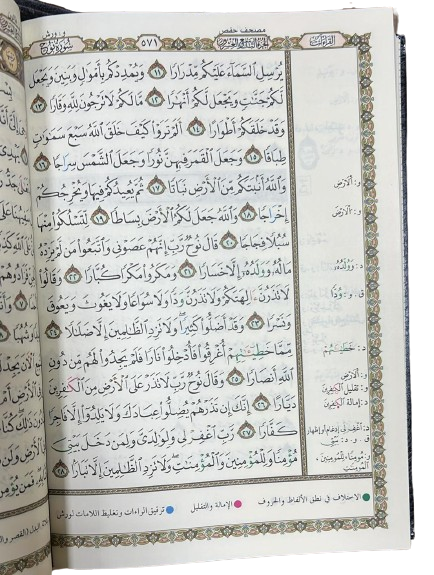 القراءات
مصحف حفص
الجزء التاسع والعشرون
٥٧١
و ورش
سورة نوح
يُرْسِلِ ٱلسَّمَآءَ عَلَيْكُم مِّدْرَارًا ١١ وَيُمْدِدْكُم بِأَمْوَٰلٍ وَبَنِينَ وَيَجْعَل
لَّكُمْ جَنَّٰتٍ وَيَجْعَل لَّكُمْ أَنْهَٰرًا ١٢ مَّا لَكُمْ لَا تَرْجُونَ لِلَّهِ وَقَارًا ١٣
وَقَدْ خَلَقَكُمْ أَطْوَارًا ١٤ أَلَمْ تَرَوْا۟ كَيْفَ خَلَقَ ٱللَّهُ سَبْعَ سَمَٰوَٰتٍ
طِبَاقًا ١٥ وَجَعَلَ ٱلْقَمَرَ فِيهِنَّ نُورًا وَجَعَلَ ٱلشَّمْسَ سِرَاجًا ١٦
وَٱللَّهُ أَنۢبَتَكُم مِّنَ ٱلْأَرْضِ نَبَاتًا ١٧ ثُمَّ يُعِيدُكُمْ فِيهَا وَيُخْرِجُكُمْ
إِخْرَاجًا ١٨ وَٱللَّهُ جَعَلَ لَكُمُ ٱلْأَرْضَ بِسَاطًا ١٩ لِّتَسْلُكُوا۟ مِنْهَا
سُبُلًا فِجَاجًا ٢٠ قَالَ نُوحٌ رَّبِّ إِنَّهُمْ عَصَوْنِى وَٱتَّبَعُوا۟ مَن لَّمْ يَزِدْهُ
مَالُهُۥ وَوَلَدُهُۥٓ إِلَّا خَسَارًا ٢١ وَمَكَرُوا۟ مَكْرًا كُبَّارًا ٢٢ وَقَالُوا۟
لَا تَذَرُنَّ ءَالِهَتَكُمْ وَلَا تَذَرُنَّ وَدًّا وَلَا سُوَاعًا وَلَا يَغُوثَ وَيَعُوقَ
وَنَسْرًا ٢٣ وَقَدْ أَضَلُّوا۟ كَثِيرًا وَلَا تَزِدِ ٱلظَّٰلِمِينَ إِلَّا ضَلَٰلًا ٢٤
مِّمَّا خَطِيٓـَٰٔتِهِمْ أُغْرِقُوا۟ فَأُدْخِلُوا۟ نَارًا فَلَمْ يَجِدُوا۟ لَهُم مِّن دُونِ
ٱللَّهِ أَنصَارًا ٢٥ وَقَالَ نُوحٌ رَّبِّ لَا تَذَرْ عَلَى ٱلْأَرْضِ مِنَ ٱلْكَٰفِرِينَ
دَيَّارًا ٢٦ إِنَّكَ إِن تَذَرْهُمْ يُضِلُّوا۟ عِبَادَكَ وَلَا يَلِدُوٓا۟ إِلَّا فَاجِرًا
كَفَّارًا ٢٧ رَّبِّ ٱغْفِرْ لِى وَلِوَٰلِدَىَّ وَلِمَن دَخَلَ بَيْتِىَ
مُؤْمِنًا وَلِلْمُؤْمِنِينَ وَٱلْمُؤْمِنَٰتِ وَلَا تَزِدِ ٱلظَّٰلِمِينَ إِلَّا تَبَارًۢا ٢٨
و: ٱلَارْضِ
و: ٱلَارْضَ
د: وَوُلْدُهُۥ
ق . و: وُدًّا
د: خَطَٰيَٰهُمْ
و: ٱلَارْضِ
و: تقليل ٱلْكَٰفِرِينَ
د: إمالة ٱلْكَٰفِرِينَ
الاختلاف في نطق الألفاظ والحروف
الإمالة والتقليل
ترقيق الراءات وتغليظ اللامات لورش